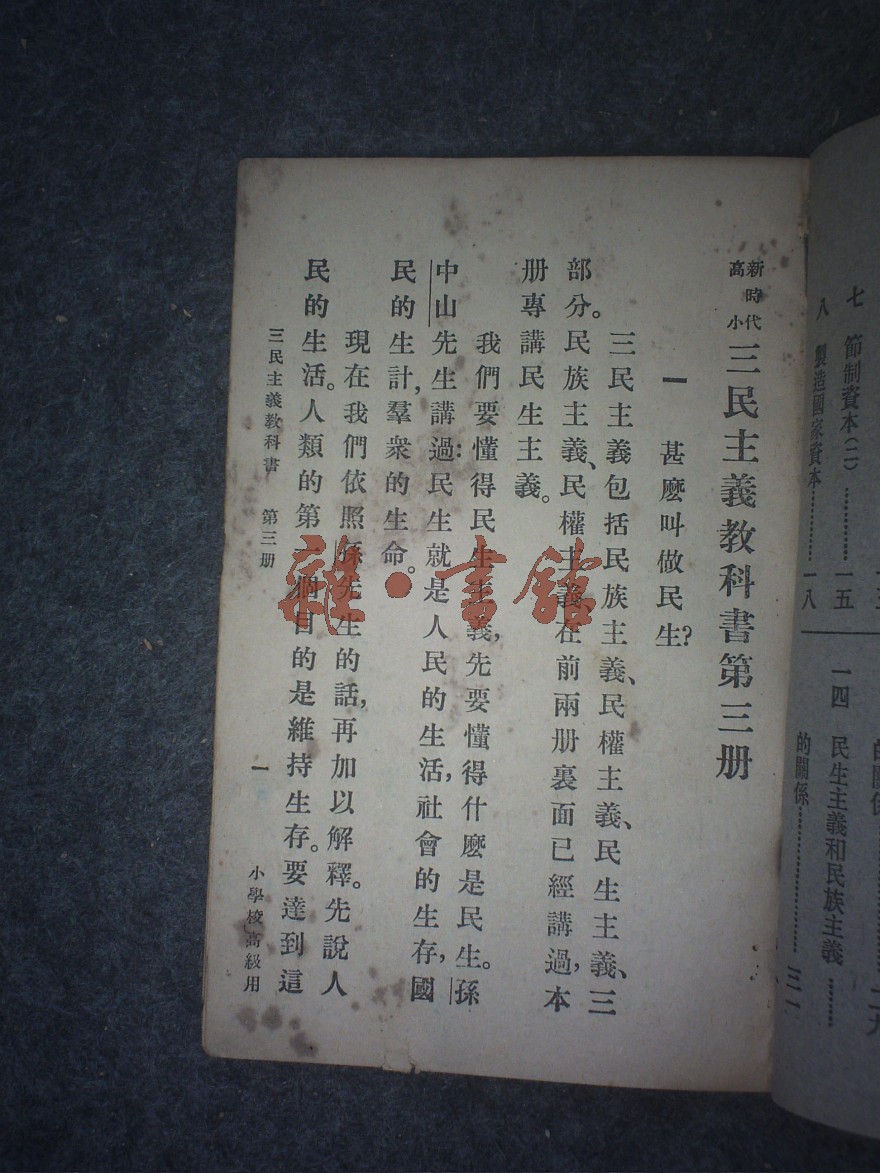 七 節制資本(二)⋯⋯⋯一五
八 製造國家資本⋯⋯⋯一八
一四 民生主義和民族主義
的關係⋯⋯⋯三一
新時代
高小
三民主義教科書第三册
一 甚麽叫做民生?
三民主義包括民族主義、民權主義、民生主義、三
部分。民族主義、民權主義、在前兩册裏面已經講過,本
册專講民生主義。
我們要懂得民生主義,先要懂得什麽是民生。孫
中山先生講過:民生就是人民的生活,社會的生存,國
民的生計,羣衆的生命。
現在我們依照孫先生的話,再加以解釋。先說人
民的生活。人類的第一個目的是維持生存。要達到這
三民主義教科書 第三册 一 小學校高級用
雜·書館